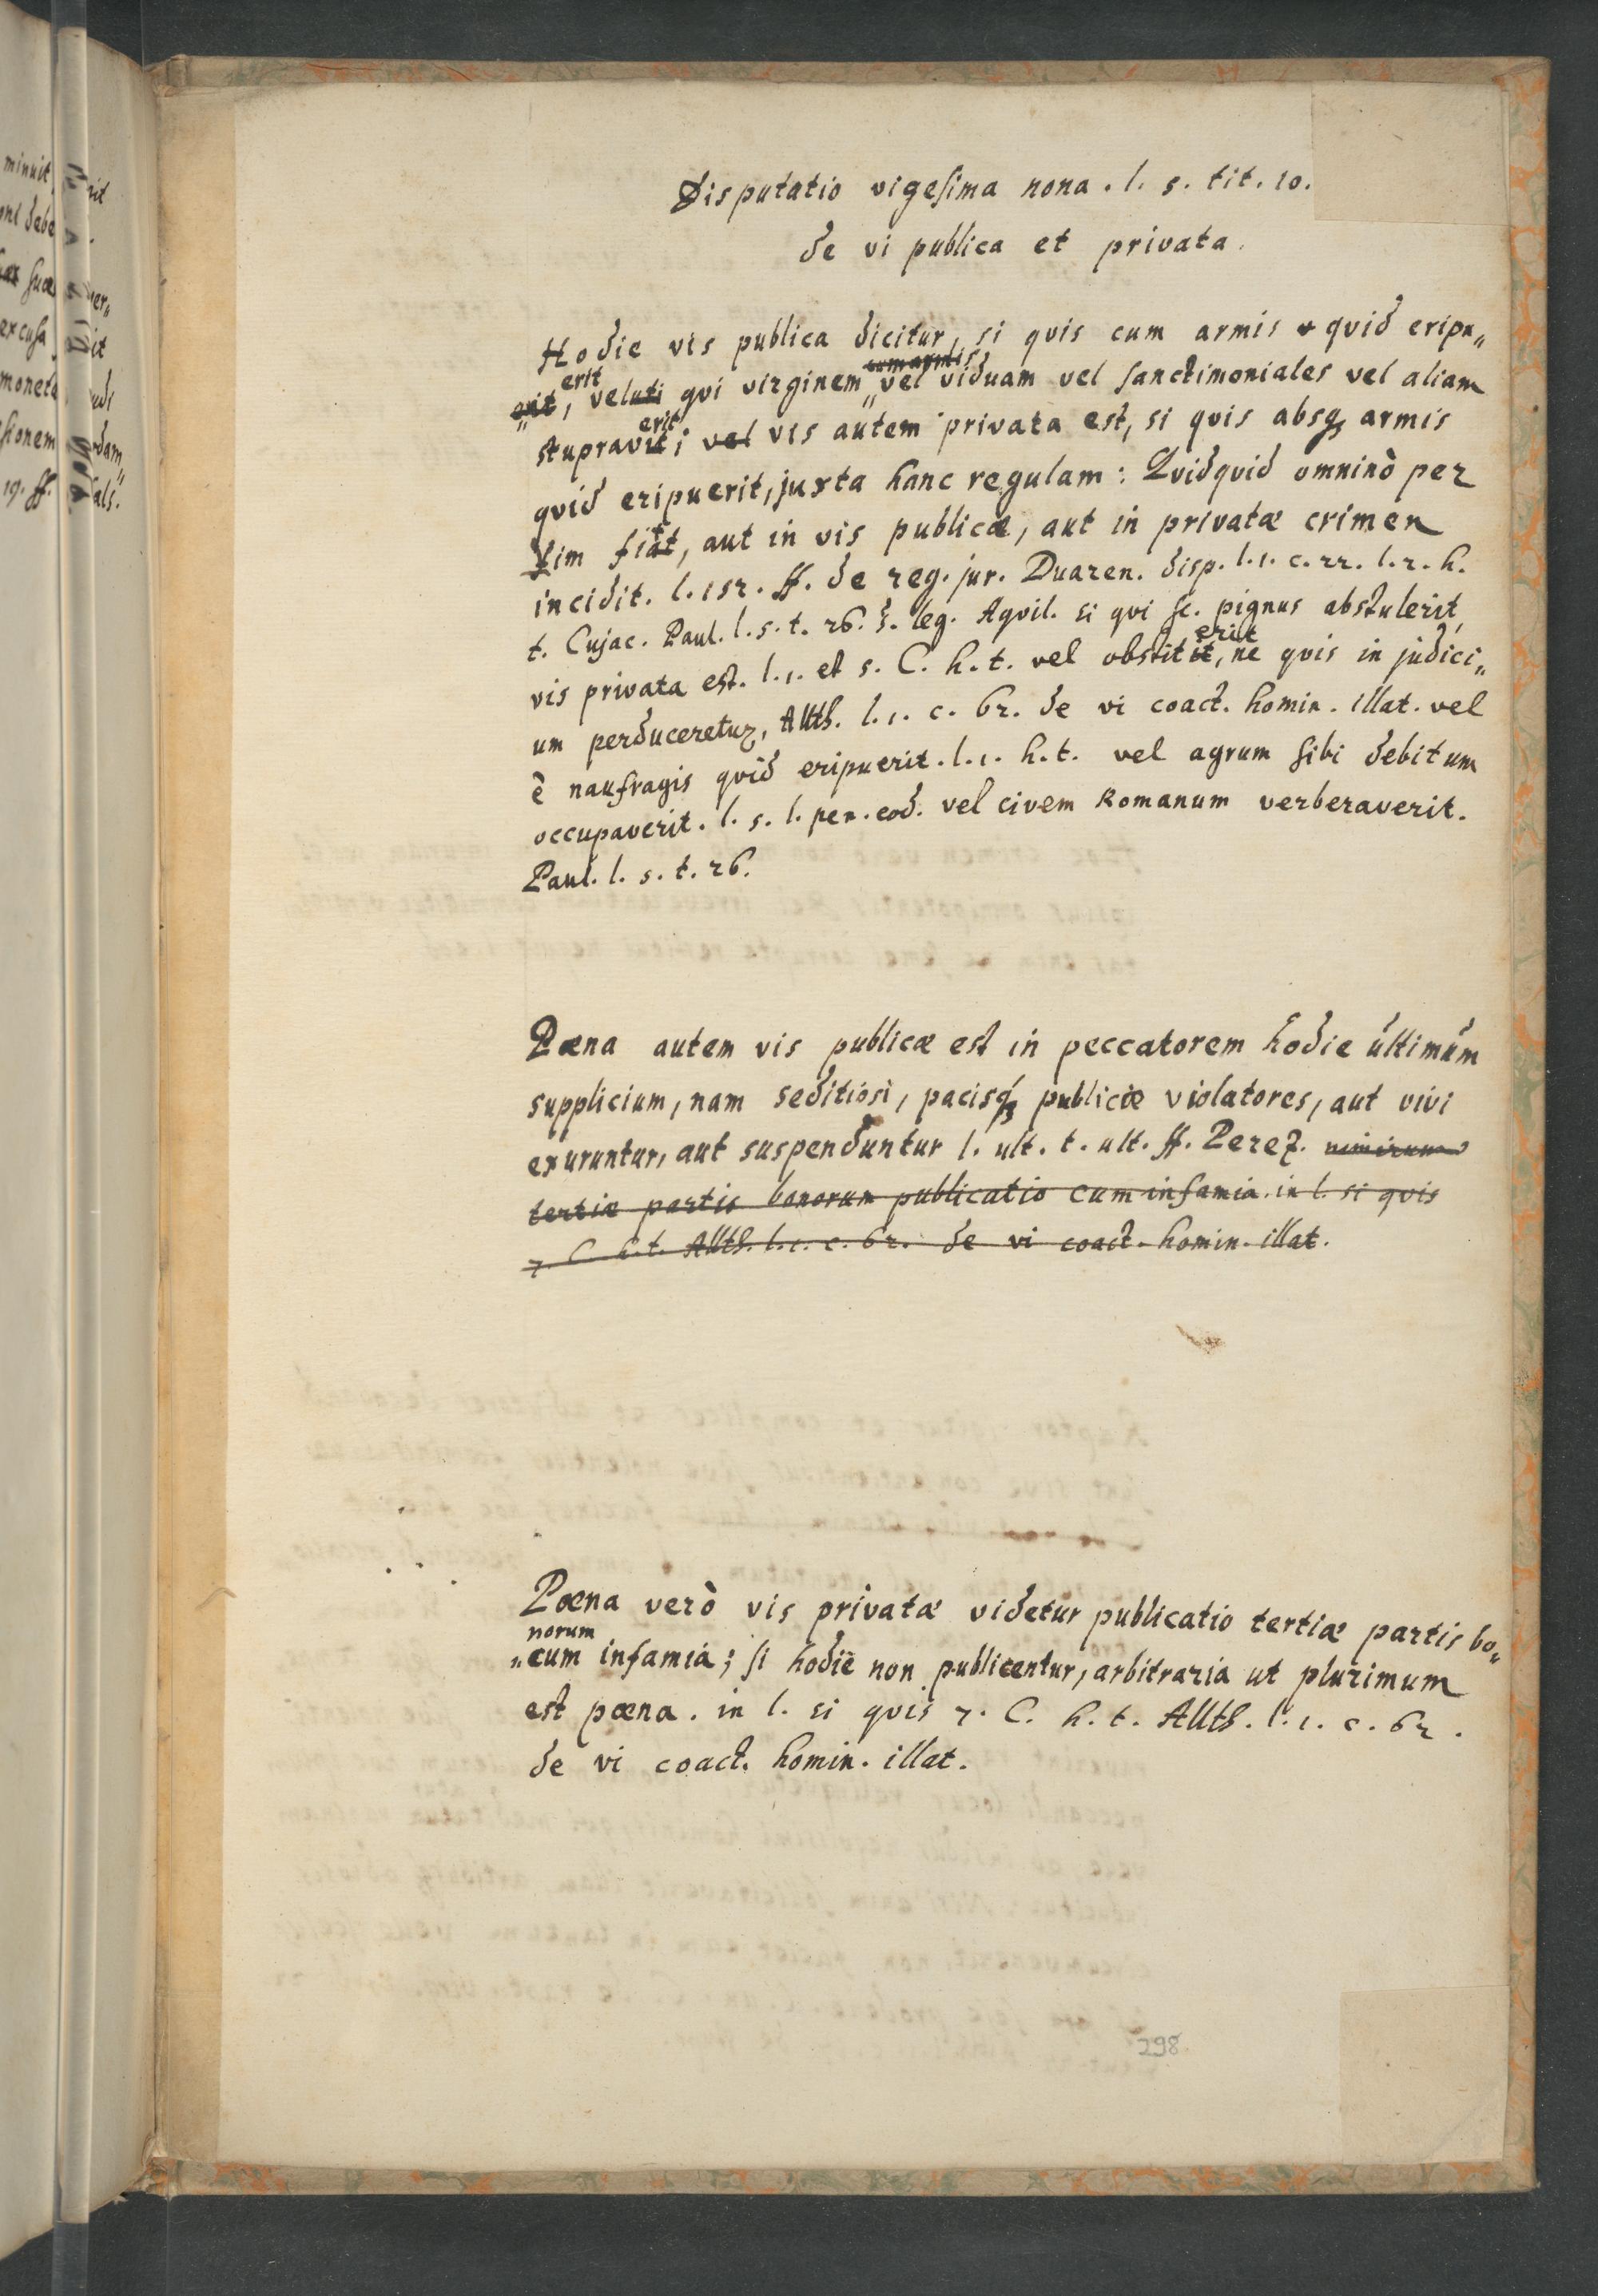 Disputatio vigesima nona. l. 5. tit. 10.
de vi publica et privata.
Hodie vis publica dicitur, si quis cum armis quid eripu„
„erit, erit veluti qui virginem „cum armis vel viduam vel sanctimoniales vel aliam
stupravit erit; vel vis autem privata est, si quis absq armis
quid eripuerit, juxta hanc regulam: Quidquid omninò per
Vim fiat, aut in vis publicæ, aut in privatæ crimen
incidit. l. 152. ff. de reg. jur. Duaren. disp. l. 1. c. 22. l. 2. h.
t. Cujac. Paul. l. 5. t. 26. §. leg. Aquil. si qui sc. pignus abstulerit,
vis privata est. l. 1. et 5. C. h. t. vel obstitit erit, ne quis in judici„
um perduceretur, Allth. l. 1. c. 62. de vi coact. homin. illat. vel
è naufragis quid eripuerit. l. 1. h. t. vel agrum sibi debitum
occupaverit. l. 5. l. pen. eod. vel civem Romanum verberaverit.
Paul. l. 5. t. 26.
Pœna autem vis publicæ est in peccatorem hodie ultimum
supplicium, nam seditiosi, pacisq publicæ violatores, aut vivi
exuruntur, aut suspenduntur l. ult. t. ult. ff. Perez. nimirum
tertiæ partis bonorum publicatio cum infamia. in l. si quis
7. C. h. t. Allth. l. 1. c. 62. de vi coact. homin. illat.
Pœna verò vis privatæ videtur publicatio tertiæ partis bo„
norum
„cum infamia; si hodie non publicentur, arbitraria ut plurimum
est pœna. in l. si quis 7. C. h. t. Allth. l. 1. c. 62.
de vi coact. homin. illat.
298